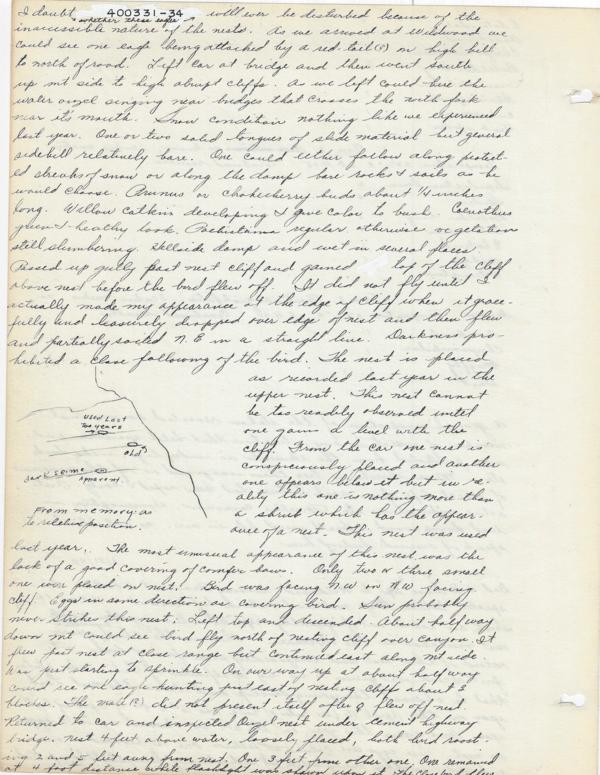 400331-34
I doubt whether these eagles will ever be disturbed because of the
inaccissible nature of the nests. As we arrived at Wildwood we
could see one eagle being attacked by a red-tail(s) on high hill
to north of road. Left car at bridge and then went south
up mt side to high abrupt cliffs. As we left could hire the
water ouzel singing near bridges that crosses the north fork
near its mouth. Snow condition nothing like we experienced
last year. One or two solid tongues of slide material but general
sidehill relatively bare. One could either follow along protect-
ed streaks of snow or along the damp bare rocks & soils as he
would choose. Prunus or chokecherry buds about 1/4 inches
long. Willow catkins developing & give color to bush. Ceanothus
green & healthy look. Pachistima regular otherwise vegetation
still slumbering. Hillside damp and wet in several places.
Passed up gully past nest cliff and gained top of the cliff
above nest before the bird flew off. It did not fly until I
actually made my appearance at the edge of cliff when it grace-
fully and leisurely dropped over edge of nest and then flew
and partially soared N.E in a straight line. Darkness pro-
hibited a close following of the bird. The nest is placed
as recorded last year in the
upper nest. This nest cannot
be too readily observed until
one gains a level with the
cliff. From the car one nest is
conspicuously placed and another
one appears below it but in re-
ality this one is nothing more than
a shrub which has the appear-
ance of a nest. This nest was used
Used last
two years
old
dark seime
apparent
From memory: as
to relative position.
last year. The most unusual appearance of this nest was the
lack of a good covering of conifer bows. Only two or three small
one were placed on nest. Bird was facing N.W on N.W facing
cliff. Eggs in same direction as covering bird. Sun probably
never strikes this nest. Left top and descended. About half way
down mt could see bird fly north of nesting cliff over canyon. It
flew past nest at close range but continued east along mt side.
Was just starting to sprinkle. On our way up at about half way
could see one eagle hunting just east of nesting cliffs about 3
blocks. The male (?) did not present itself after ♀ flew off nest.
Returned to car and inspected Ouzel nest under cement highway
bridge. nest 4 feet above water, loosely placed, both bird roost-
ing 2 and 5 feet away from nest. One 3 feet from other one. One remained
at 4 foot distance while flashlight was shown upon it. The